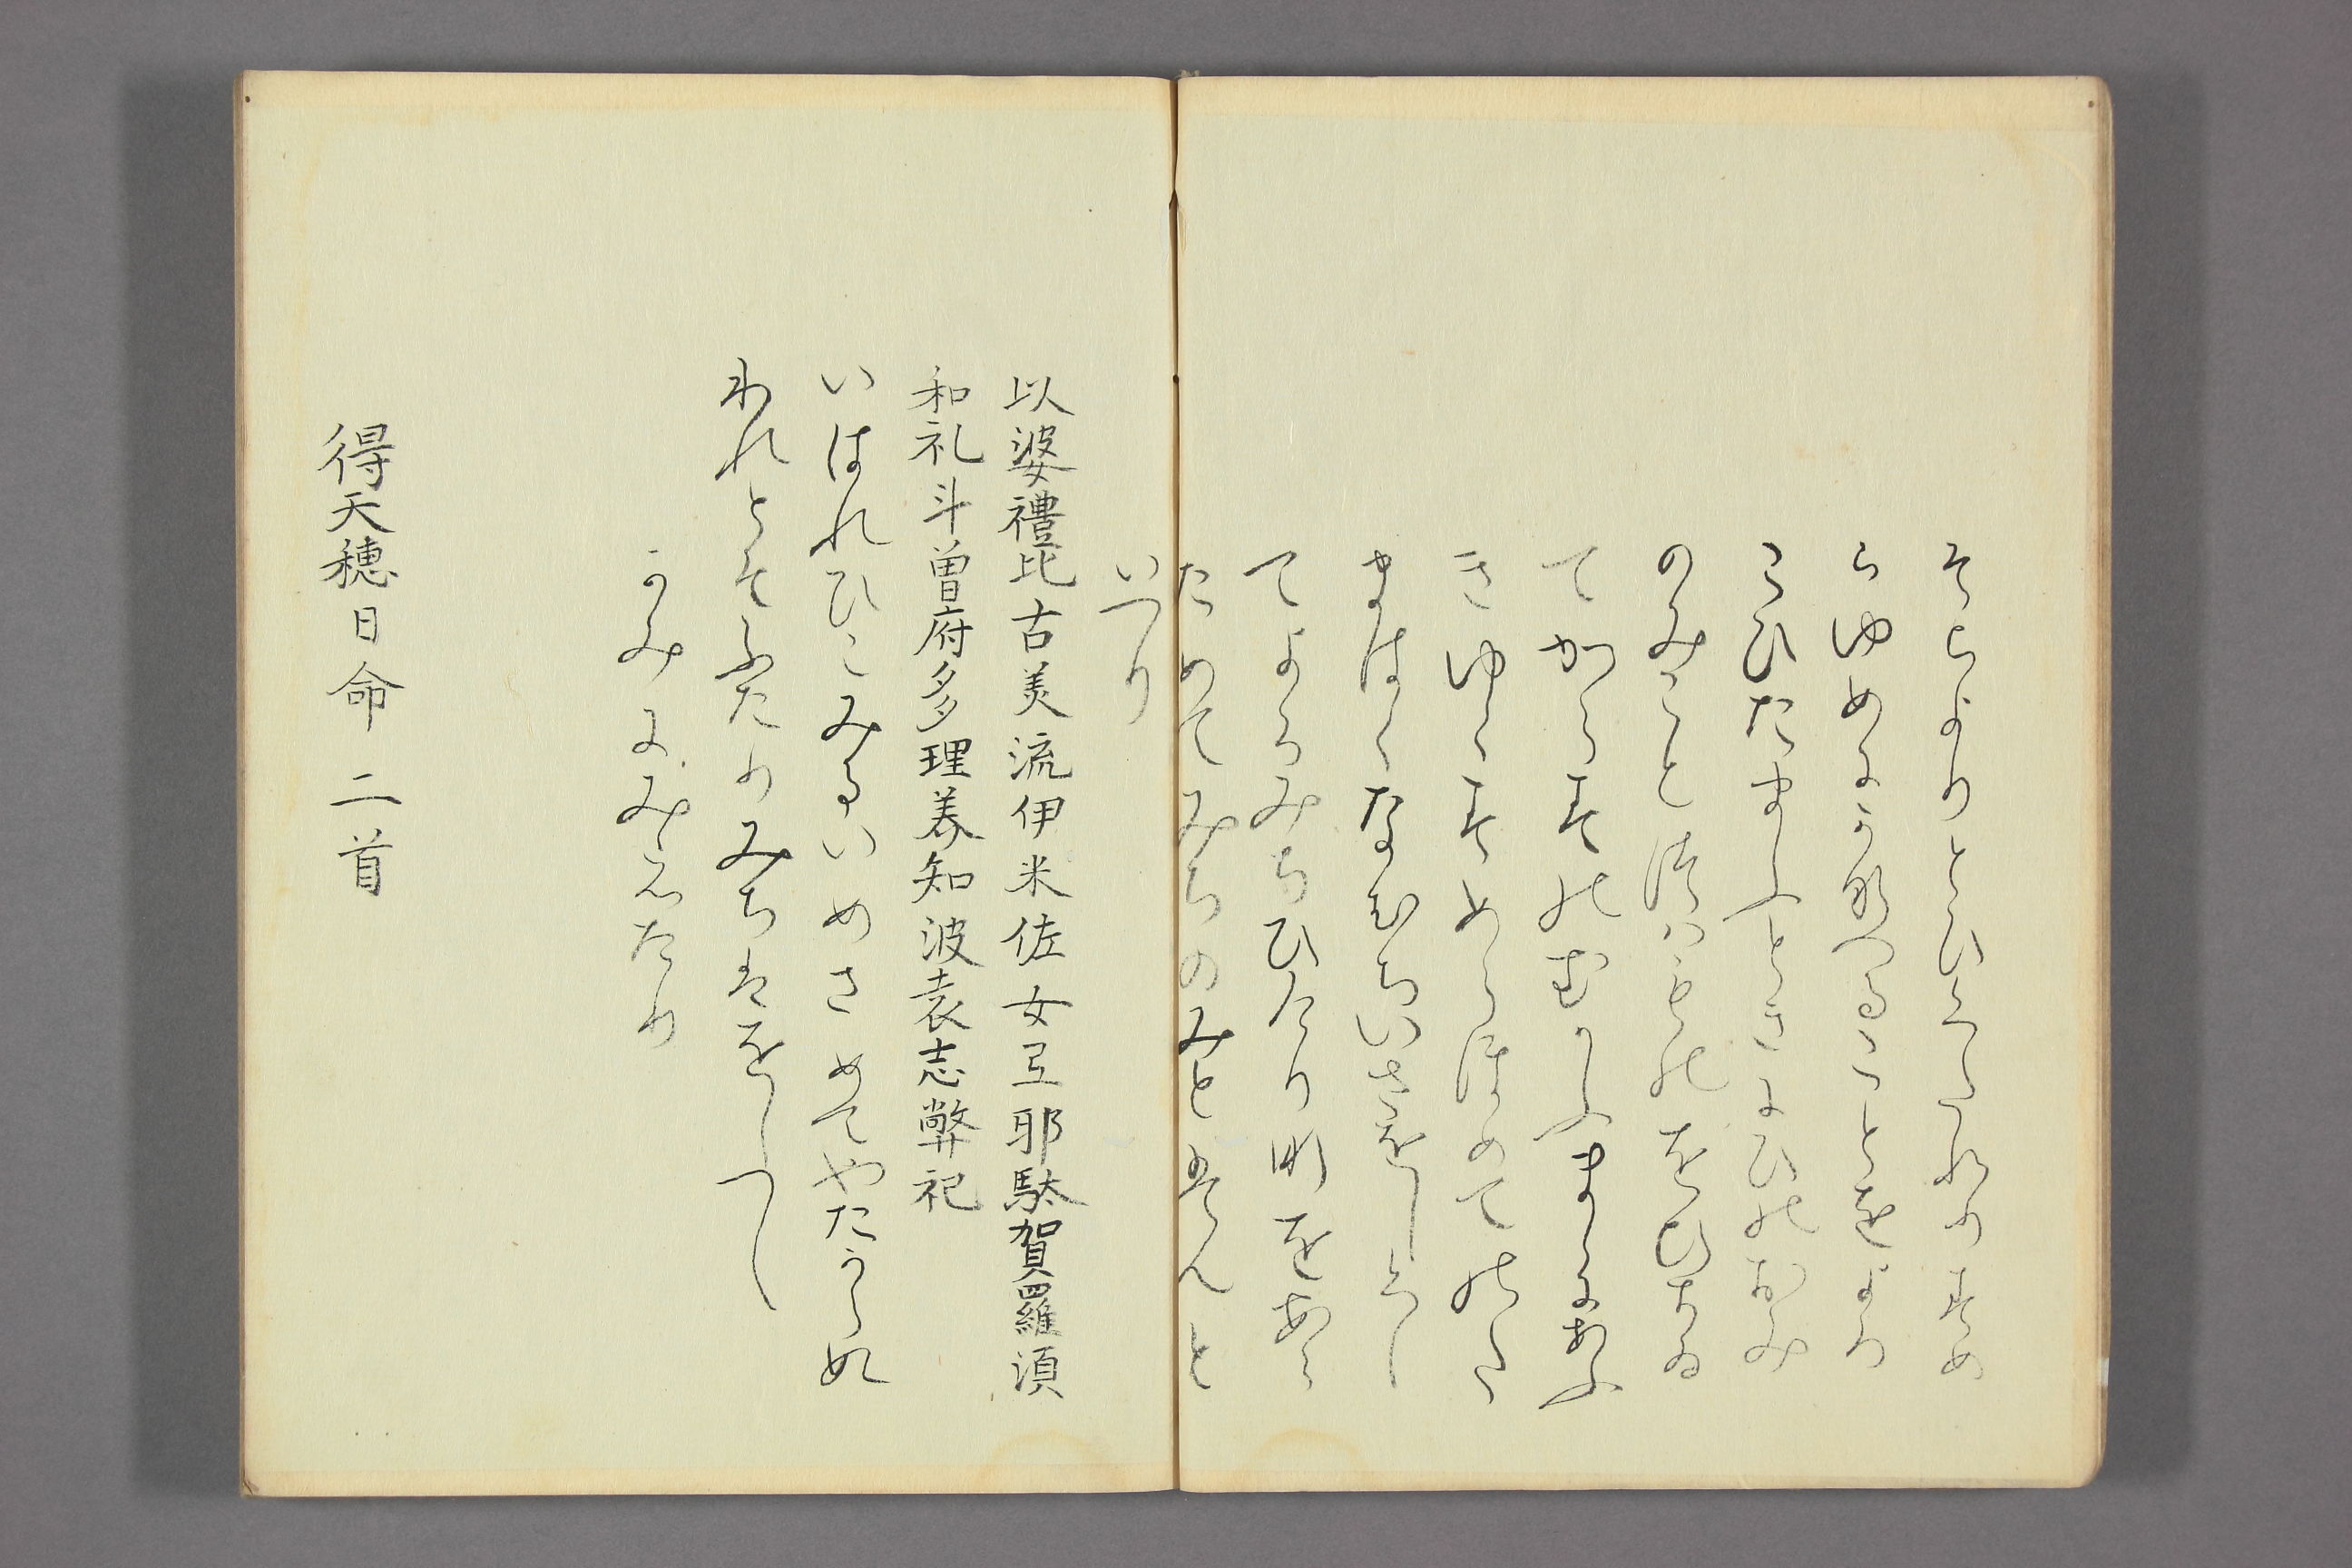 そらよりとひくたれりすめ
らゆめにかなへることをよろ
こひたまふときにひのおみ
のみこと つはものをひきゐ
てからすのむかふまにまに
きゆくすめらほめてのたま
まはくなむちいさをし
てよくみちひけり 名をあら
ためてみちのみとせんと
いつり
以婆禮比古美流伊米佐女弖耶駄賀羅須
和礼斗曽府多理美知波袁志弊祀
いはれひこみるいめさめてやたからす
われとそふたりみちはをしへし
かみにみえたり
得天穂日命 二首